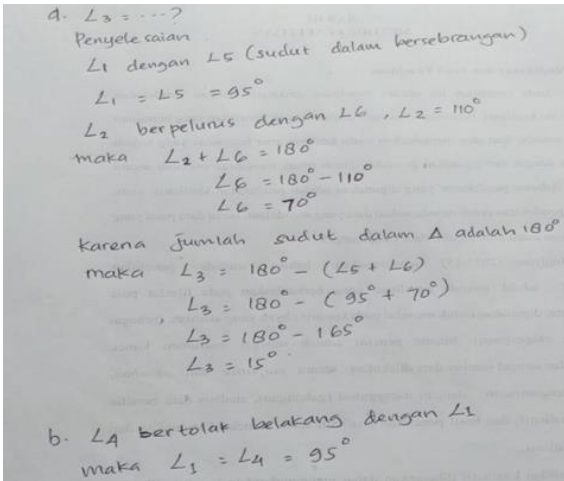 a. ∠3 = ....?
Penyelesaian
∠1 dengan ∠5 (sudut dalam bersebrangan)
∠1 = ∠5 = 95°
∠2 berpelurus dengan ∠6, ∠2 = 110°
maka ∠2 + ∠6 = 180°
∠6 = 180° - 110°
∠6 = 70°
Karena jumlah sudut dalam Δ adalah 180°
maka ∠3 = 180° - (∠5 + ∠6)
∠3 = 180° - (95° + 70°)
∠3 = 180° - 165°
∠3 = 15°.
b. ∠4 bertolak belakang dengan ∠1
maka ∠1 = ∠4 = 95°